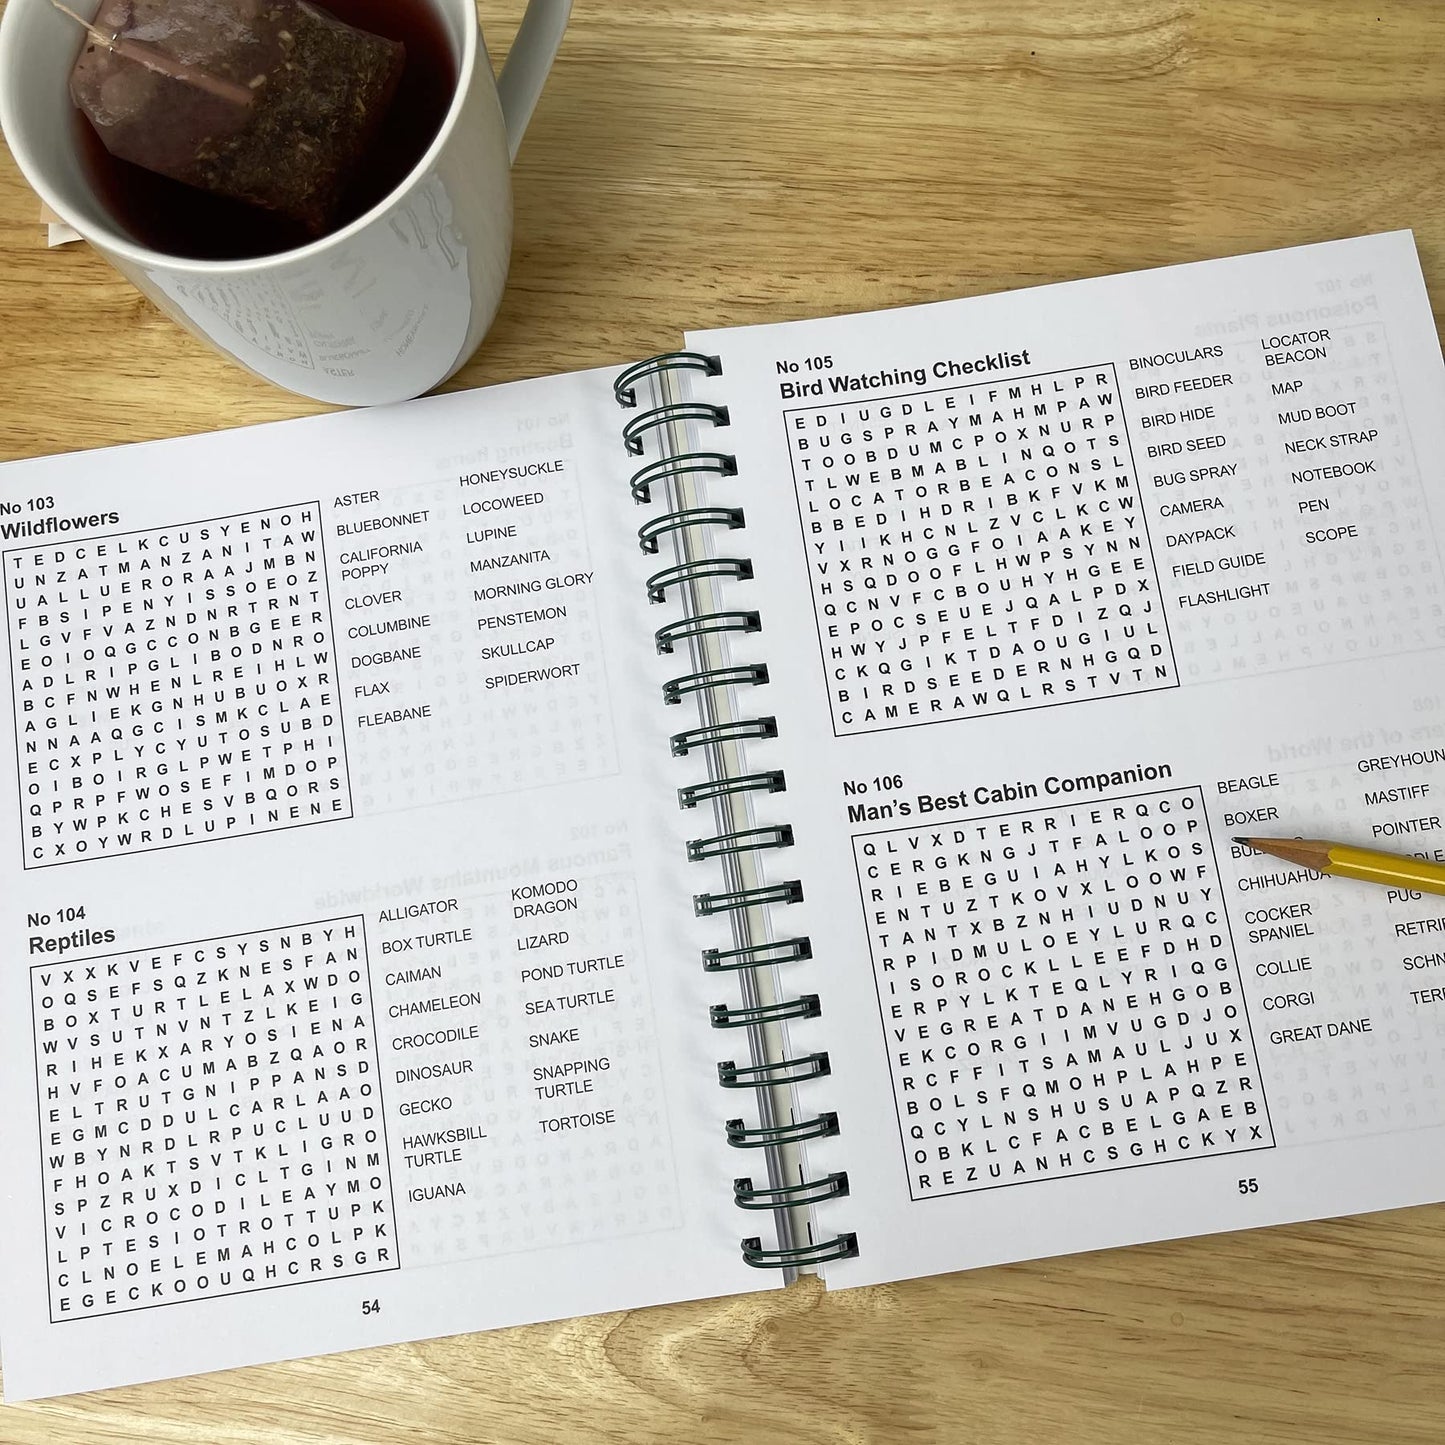 No 103
Wildflowers
T E D C E L K C U S Y E N O H
U N Z A T M A N Z A N I T A W
U A L L U E R O R A A J M B N
F B S I P E N Y I S S O E O Z
L G V F V A Z N D N R T R N T
E O I O Q G C C O N B G E E R
A D L R I P G L I B O D N R O
B C F N W H E N L R E I H L W
A G L I E K G N H U B U O X R
N N A A Q G C I S M K C L A E
E C X P L Y C Y U T O S U B D
O I B O I R G L P W E T P H I
Q P R P F W O S E F I M D O P
B Y W P K C H E S V B Q O R S
C X O Y W R D L U P I N E N E
ASTER
BLUEBONNET
CALIFORNIA
POPPY
CLOVER
COLUMBINE
DOGBANE
FLAX
FLEABANE
HONEYSUCKLE
LOCOWEED
LUPINE
MANZANITA
MORNING GLORY
PENSTEMON
SKULLCAP
SPIDERWORT
No 104
Reptiles
V X X K V E F C S Y S N B Y H
O Q S E F S Q Z K N E S F A N
B O X T U R T L E L A X W D O
W V S U T N V N T Z L K E I G
R I H E K X A R Y O S I E N A
H V F O A C U M A B Z Q A O R
E L T R U T G N I P P A N S D
E G M C D D U L C A R L A A O
W B Y N R D L R P U C L U U D
F H O A K T S V T K L I G R O
S P Z R U X D I C L T G I N M
V I C R O C O D I L E A Y M O
L P T E S I O T R O T T U P K
C L N O E L E M A H C O L P K
E G E C K O O U Q H C R S G R
ALLIGATOR
BOX TURTLE
CAIMAN
CHAMELEON
CROCODILE
DINOSAUR
GECKO
HAWKSBILL
TURTLE
IGUANA
KOMODO
DRAGON
LIZARD
POND TURTLE
SEA TURTLE
SNAKE
SNAPPING
TURTLE
TORTOISE
54
No 105
Bird Watching Checklist
E D I U G D L E I F M H L P R
B U G S P R A Y M A H M P A W
T O O B D U M C P O X N U R P
T L W E B M A B L I N Q O T S
L O C A T O R B E A C O N S L
B B E D I H D R I B K F V K M
Y I I K H C N L Z V C L K C W
V X R N O G G F O I A A K E Y
H S Q D O O F L H W P S Y N N
Q C N V F C B O U H Y H G E E
E P O C S E U E J Q A L P D X
H W Y J P F E L T F D I Z Q J
C K Q G I K T D A O U G I U L
B I R D S E E D E R N H G Q D
C A M E R A W Q L R S T V T N
BINOCULARS
BIRD FEEDER
BIRD HIDE
BIRD SEED
BUG SPRAY
CAMERA
DAYPACK
FIELD GUIDE
FLASHLIGHT
LOCATOR
BEACON
MAP
MUD BOOT
NECK STRAP
NOTEBOOK
PEN
SCOPE
No 106
Man's Best Cabin Companion
Q L V X D T E R R I E R Q C O
C E R G K N G J T F A L O O P
R I E B E G U I A H Y L K O S
E N T U Z T K O V X L O O W F
T A N T X B Z N H I U D N U Y
R P I D M U L O E Y L U R Q C
I S O R O C K L L E E F D H D
E R P Y L K T E Q L Y R I Q G
V E G R E A T D A N E H G O B
E K C O R G I I M V U G D J O
R C F F I T S A M A U L J U X
B O L S F Q M O H P L A H P E
Q C Y L N S H U S U A P Q Z R
O B K L C F A C B E L G A E B
R E Z U A N H C S G H C K Y X
BEAGLE
BOXER
CHIHUAHUA
COCKER
SPANIEL
COLLIE
CORGI
GREAT DANE
GREYHOUN
MASTIFF
POINTER
PUG
RETRI
SCHN
TER
55